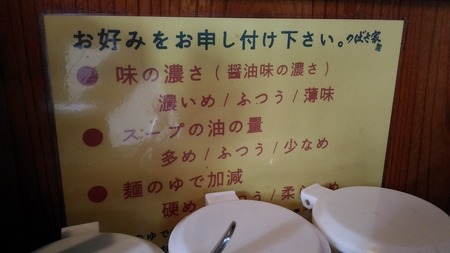 お好みをお申し付け下さい。つばさ家
味の濃さ（醤油味の濃さ）
濃いめ/ふつう/薄味
スープの油の量
多め/ふつう/少なめ
麺のゆで加減
硬め
のゆで